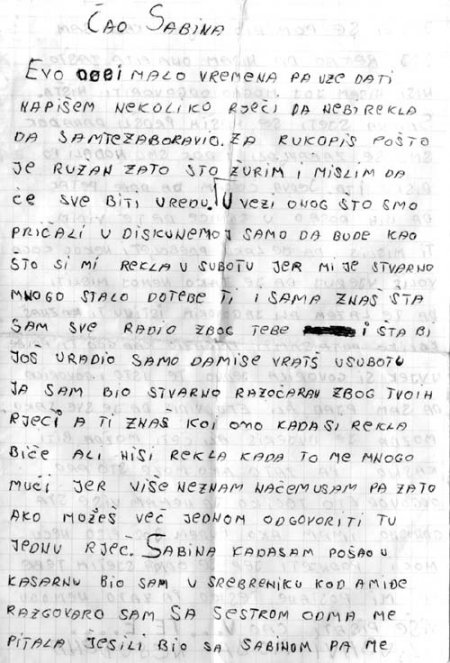 ĆAO SABINA
EVO DOBI MALO VREMENA PA UZE DATI
NAPIŠEM NEKOLIKO RJEĆI DA NEBI REKLA
DA SAMTEZABORAVIO. ZA RUKOPIS POŠTO
JE RUŽAN ZATO ŠTO ŽURIM I MISLIM DA
ĆE SVE BITI UREDU. U VEZI ONOG ŠTO SMO
PRIĆALI U DISKUNEMOJ SAMO DA BUDE KAO
ŠTO SI MI REKLA U SUBOTU JER MI JE STVARNO
MNOGO STALO DOTEBE TI I SAMA ZNAŠ ŠTA
SAM SVE RADIO ZBOG TEBE I ŠTA BI
JOŠ URADIO SAMO DAMISE VRATŠ USUBOTU
JA SAM BIO STVARNO RAZOĆARAN ZBOG TVOIH
RJEĆI A TI ZNAŠ KOI ONO KADA SI REKLA
BIĆE ALI NISI REKLA KADA TO ME MNOGO
MUĆI JER VIŠE NEZNAM NAĆEMUSAM PA ZATO
AKO MOŽEŠ VEĆ JEDNOM ODGOVORITI TU
JEDNU RJEC. SABINA KADASAM POŠAO U
KASARNU BIO SAM U SREBRENIKU KOD AMIDE
RAZGOVARO SAM SA SESTROM ODMA ME
PITALA JESILI BIO SA SABINOM PA ME